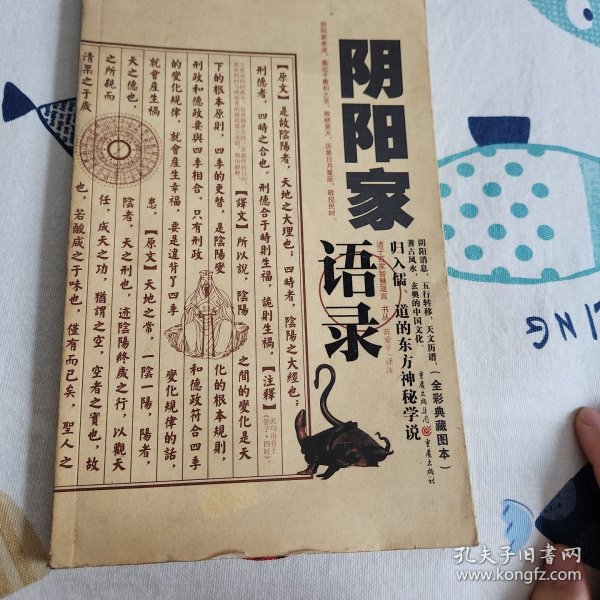 阴阳家语录
阴阳家者流,盖出于羲和之官,敬顺昊天,历象日月星辰,敬授民时。
阴阳消息,五行转移,天文历谱,
善占风水,玄奥的中国文化。
归入儒、道的东方神秘学说
诸子百家智慧箴言 书丛 陈爱平 译注
(全彩典藏图本)
重庆出版集团
重庆出版社
【原文】是故陰陽者,天地之大理也;四時者,陰陽之大經也;
刑德者,四時之合也。刑德合于時則生福,詭則生禍。【注釋】此句出自于《管子·四時》。
【譯文】所以說,陰陽之間的變化是天
下的根本原則,四季的更替,是陰陽變化的根本規則,
刑政和德政要與四季相合。只有刑政和德政符合四季
的變化規律,就會産生幸福,要是違背了四季變化規律的話,
就會産生禍患。【原文】天地之常,一陰一陽,陽者,
天之德也,陰者,天之刑也,迹陰陽終歲之行,以觀天
之所親而任,成天之功,猶謂之空,空者之實也,故
清溧之于歲也,若酸咸之于味也,僅有而已矣,聖人之
ING
孔夫子旧书网
www.kongfz.com